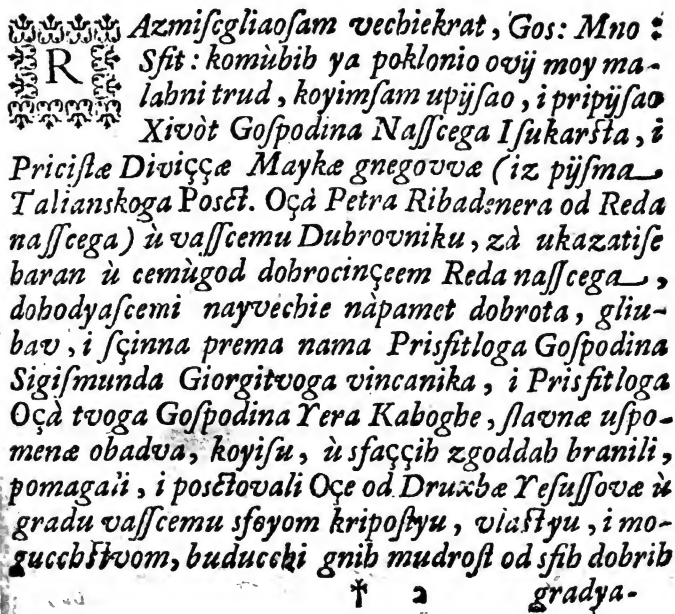 RAzmiſcgliaoſam vechiekrat, Gos: Mno:
Sfit: komùbih ya poklonio ovïj moy ma-
lahni trud, koyimſam upïjſao, i pripïjſao
Xivòt Goſpodina Naſſcega Iſukarſta, i
Priciſtæ Diviççæ Maykæ gnegovvæ (iz pïjſma
Talianskoga Poſct. Oçà Petra Ribadenera od Reda
naſſcega) ù vaſſcemu Dubrovniku, zà ukazatiſe
haran ù cemùgod dobrocinçeem Reda naſſcega,
dohodyaſcemi nayvechie nàpamet dobrota, gliu-
bav, i ſçinna prema nama Prisfitloga Goſpodina
Sigiſmunda Giorgitvoga vincanika, i Prisfitloga
Oçà tvoga Goſpodina Yera Kaboghe, ſlavnæ uſpo-
menæ obadva, koyiſu, ù sfaççih zgoddah branili,
pomagali, i poſctovali Oçe od Druxbæ Yeſuſſovæ ù
gradu vaſſcemu sfoyom kripoſtyu, vlaſtyu, i mo-
gucchſtvom, buducchi gnih mudroſt od sfih dobrih
† 2 gradya-